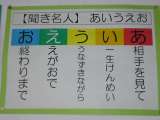 【聞き名人】あいうえお
あ相手を見て
い一生けんめい
ううなずきながら
ええがおで
お終わりまで